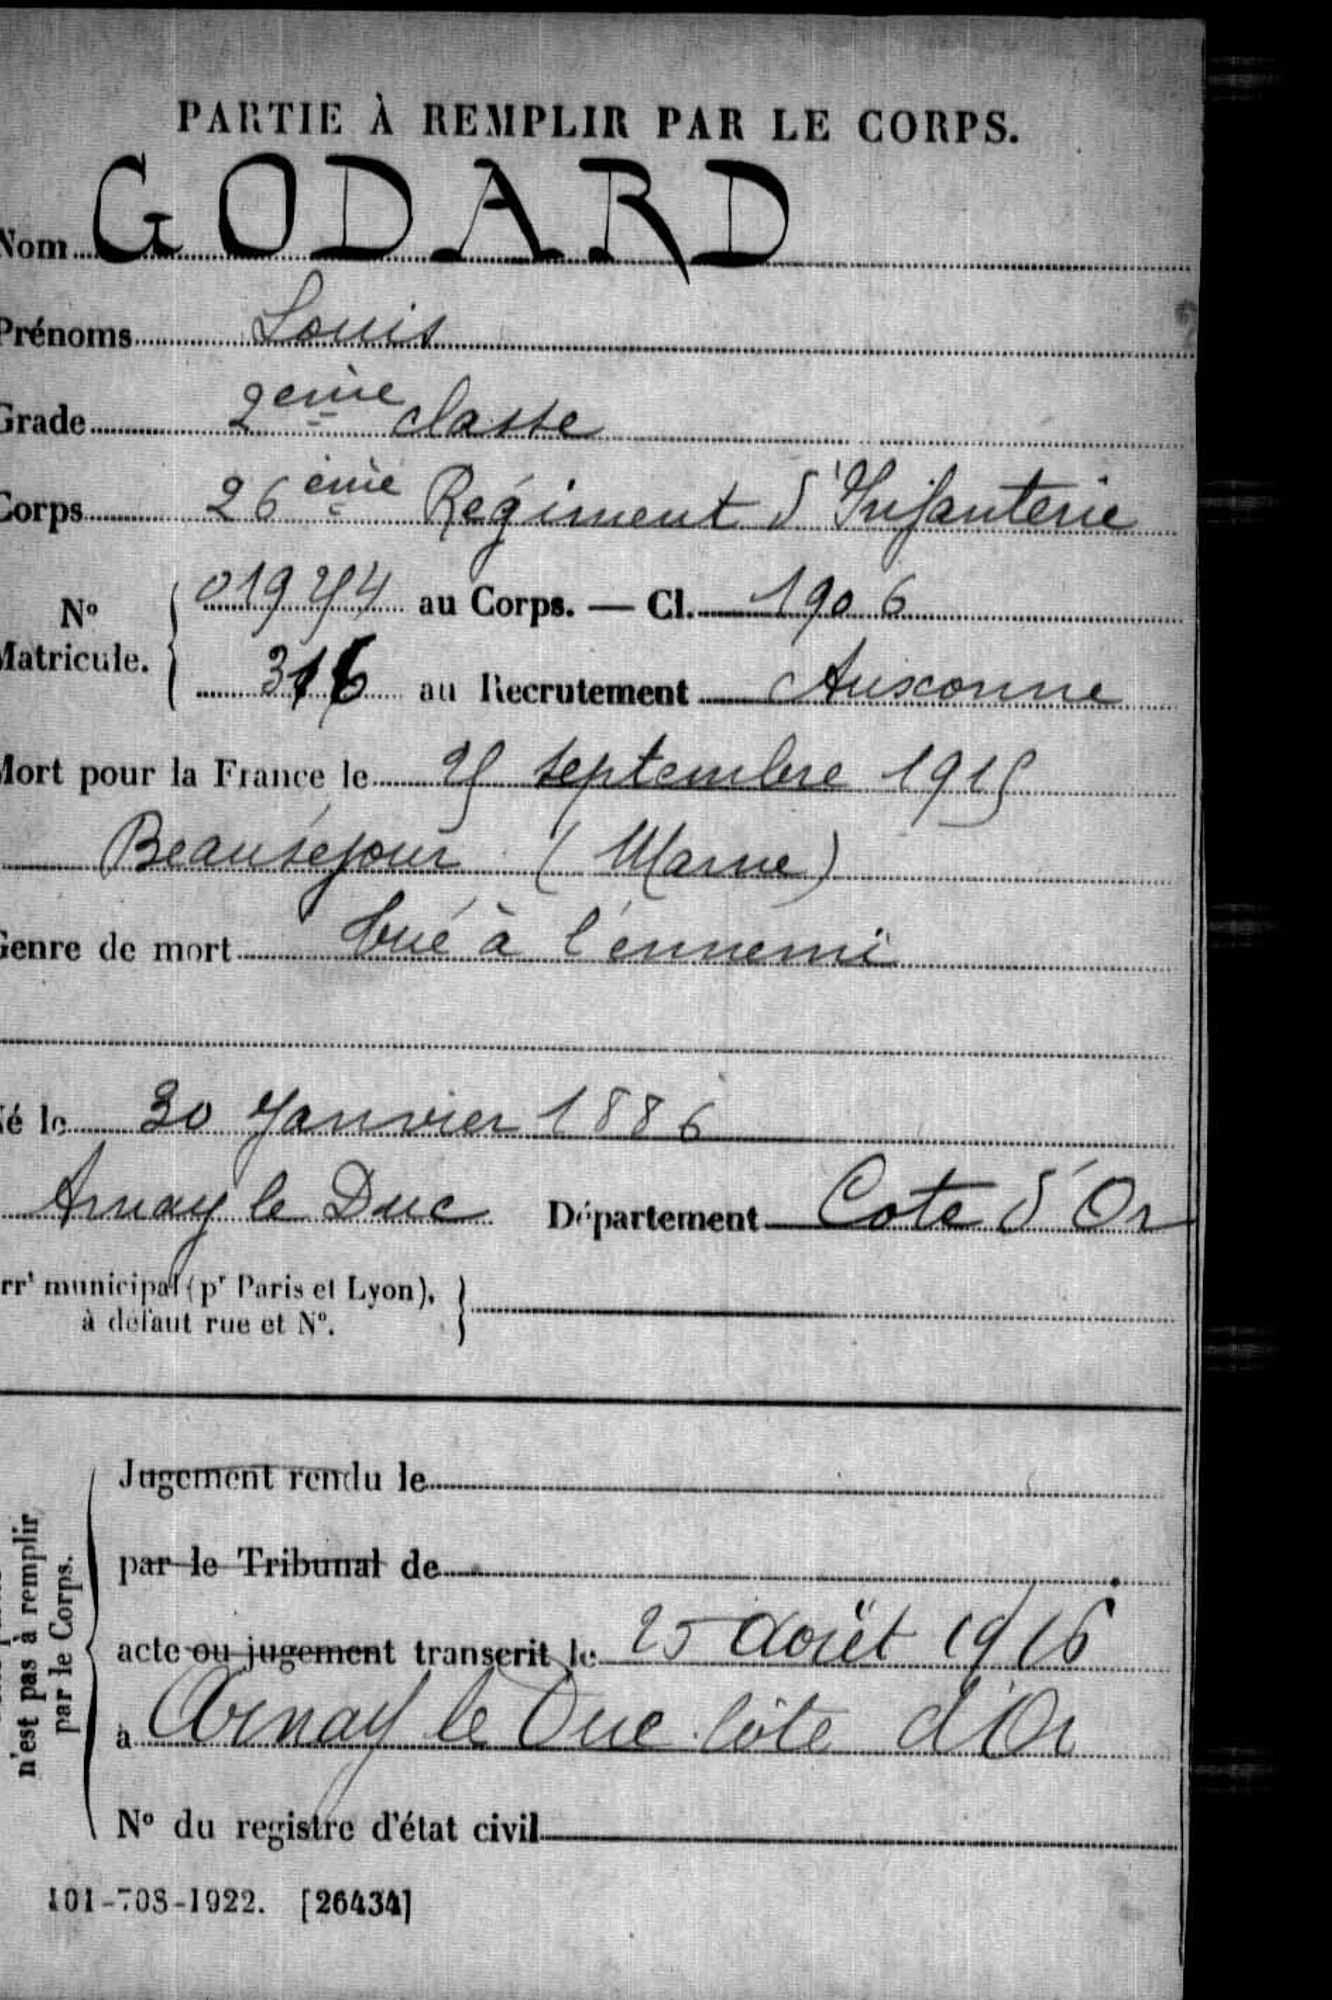 PARTIE À REMPLIR PAR LE CORPS.
Nom GODARD
Prénoms Louis
Grade 2ème classe
Corps 26ème Régiment d'Infanterie
No Matricule. { au Corps. — Cl. 1906
316 au Recrutement Auxonne
Mort pour la France le 25 septembre 1915
Beauséjour (Marne)
Genre de mort tué à l'ennemi
Né le 30 Janvier 1886
Arnay le Duc Département Cote d'Or
arrt municipal (pr Paris et Lyon), à défaut rue et No. }
n'est pas à remplir par le Corps.
Jugement rendu le
par le Tribunal de
acte ou jugement transcrit le 25 Août 1916
à Arnay le Duc Côte d'Or
No du registre d'état civil
101-708-1922. [26434]